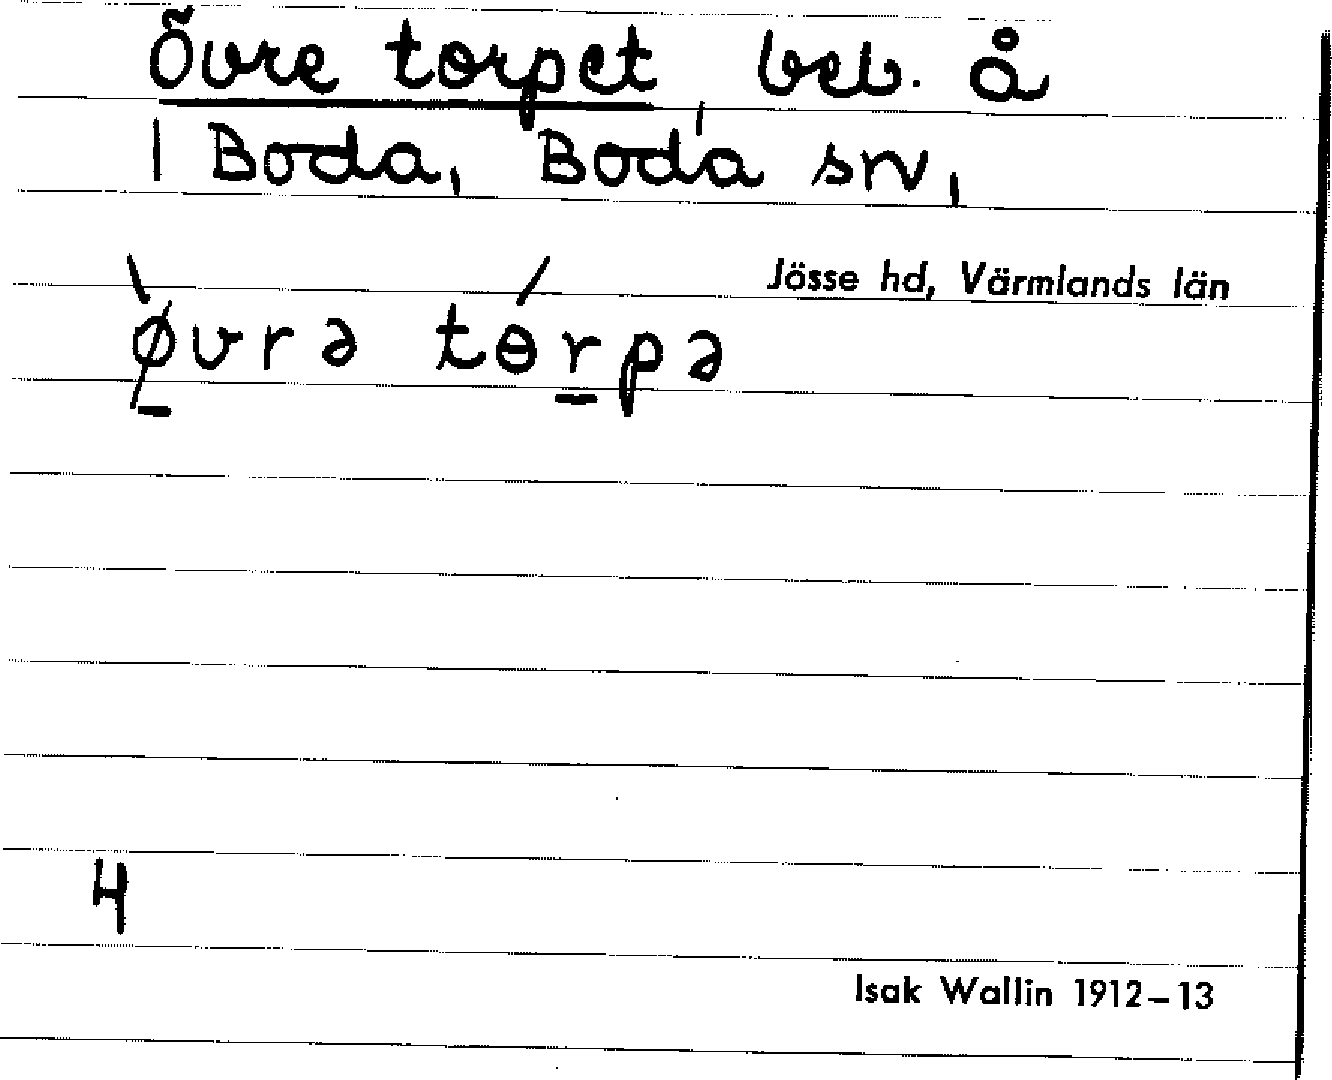 Övre torpet, beb. å
1 Boda, Boda sn,
Jösse hd, Värmlands län
ø̱̀vrə tɵ́ṟpə
4
Isak Wallin 1912–13